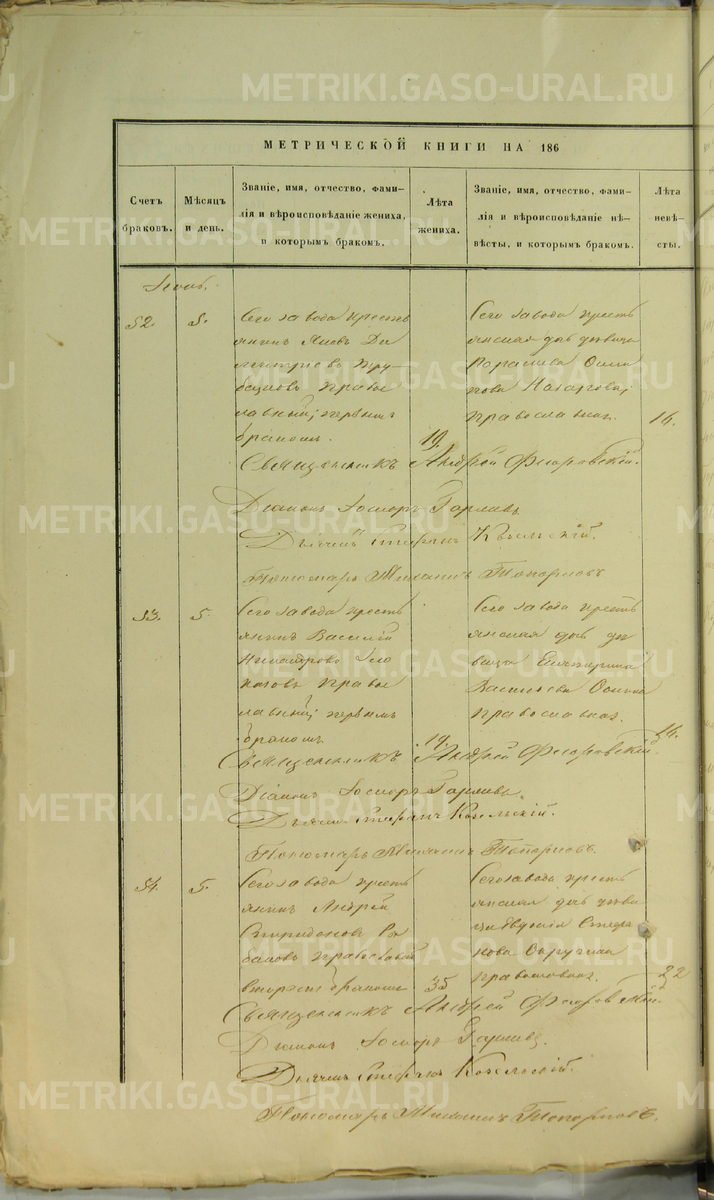 МЕТРИЧЕСКОЙ КНИГИ НА 186
Счетъ
браковъ.
Мѣсяцъ
и день.
Званіе, имя, отчество, фами-
лія и вѣроисповѣданіе жениха,
и которымъ бракомъ.
Лѣта
жениха.
Званіе, имя, отчество, фами-
лія и вѣроисповѣданіе не-
вѣсты, и которымъ бракомъ.
Лѣта
невѣ-
сты.
52.
5.
Сего завода кресть
янинъ
Ди
митріевъ Тру
православ
ный, первымъ
бракомъ.
19.
Сего завода кресть
янская дѣвица
Параскева Осип
ова Назарова,
православная.
16.
Священникъ Андрей Флоровскій.
Діаконъ
Дьячекъ Стефанъ Кожельскій.
Пономарь Михаилъ Топорковъ
53.
5.
Сего завода кресть
янинъ Василій
Никифоровъ
православ
ный, первымъ
бракомъ.
19.
Сего завода кресть
янская дѣ
вица Екатерина
Васильева
православная.
16.
Священникъ Андрей Флоровскій.
Діаконъ
Дьячекъ Стефанъ Кожельскій.
Пономарь Михаилъ Топорковъ.
54.
5.
Сего завода кресть
янинъ Андрей
Спиридоновъ
православный
вторымъ бракомъ
35
Сего завода кресть
янская дѣви
ца Евдокія Стефа
нова
православная.
22
Священникъ Андрей Флоровскій.
Діаконъ
Дьячекъ Стефанъ Кожельскій.
Пономарь Михаилъ Топорковъ.
METRIKI.GASO-URAL.RU